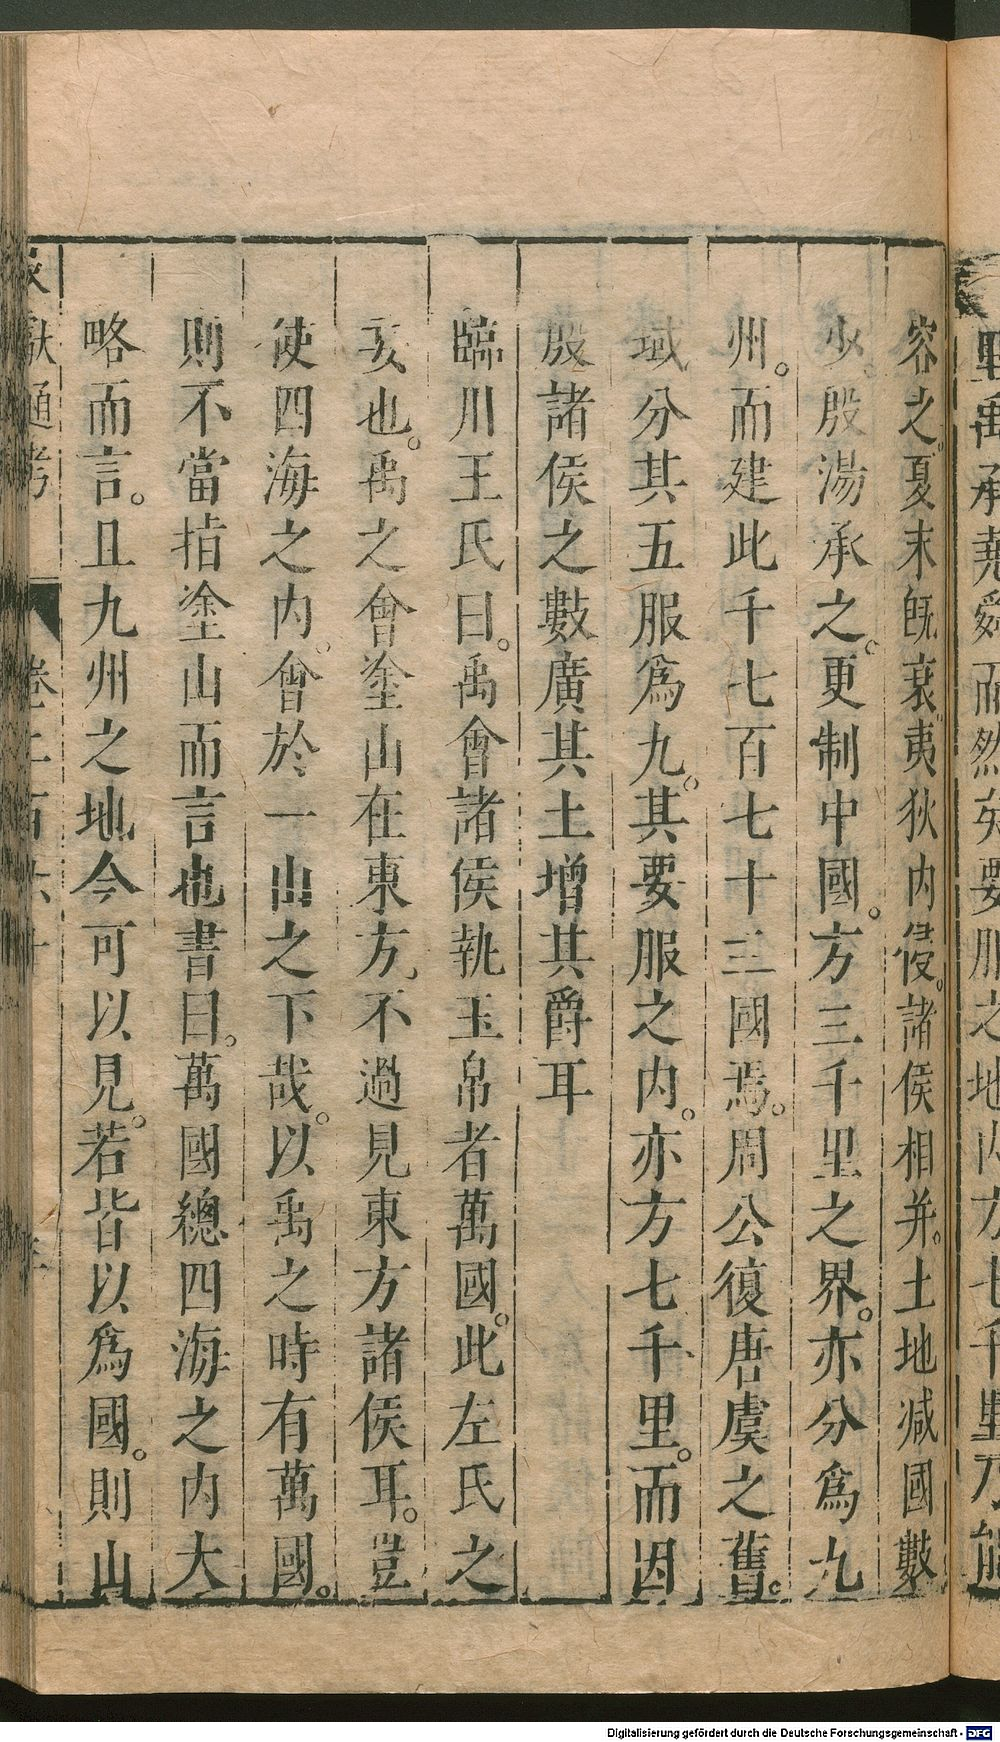 野禹承堯舜而然矣要服之地内方七千里乃能
容之。夏末旣衰。夷狄内侵。諸侯相并。土地减國數
少。殷湯承之。更制中國。方三千里之界。亦分爲九
州。而建此千七百七十三國焉。周公復唐虞之舊。
域分其五服爲九。其要服之内。亦方七千里。而因
殷諸侯之數廣其土增其爵耳
臨川王氏曰。禹會諸侯執玉帛者萬國。此左氏之
妄也。禹之會塗山在東方。不過見東方諸侯耳。豈
使四海之内。會於一山之下哉。以禹之時有萬國。
則不當指塗山而言也書曰。萬國總四海之内大
略而言。且九州之地今可以見。若皆以爲國。則山
文獻通考 卷二百六十
Digitalisierung gefördert durch die Deutsche Forschungsgemeinschaft - DFG